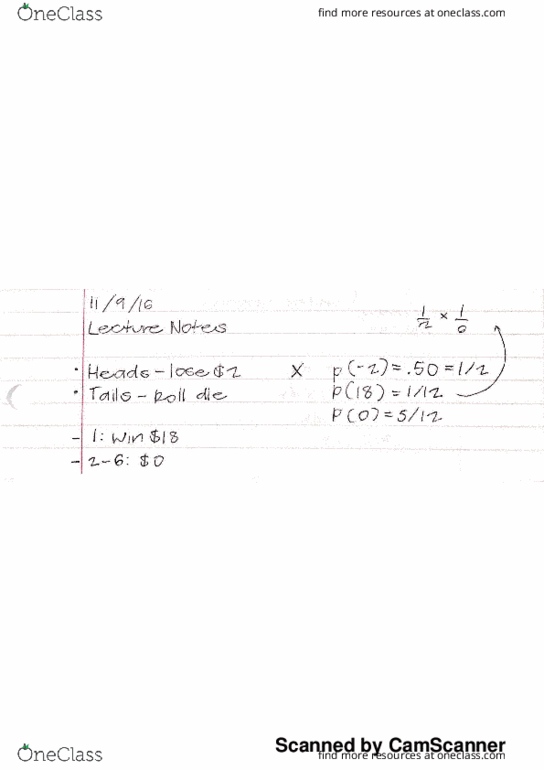 OneClass
find more resources at oneclass.com
11/9/16
Lecture Notes
1/2 × 1/6
· Heads - lose $2 X p(-2) = .50 = 1/2
· Tails - Roll die p(18) = 1/12
P(0) = 5/12
- 1: win $18
- 2-6: $0
Scanned by CamScanner
OneClass
find more resources at oneclass.com